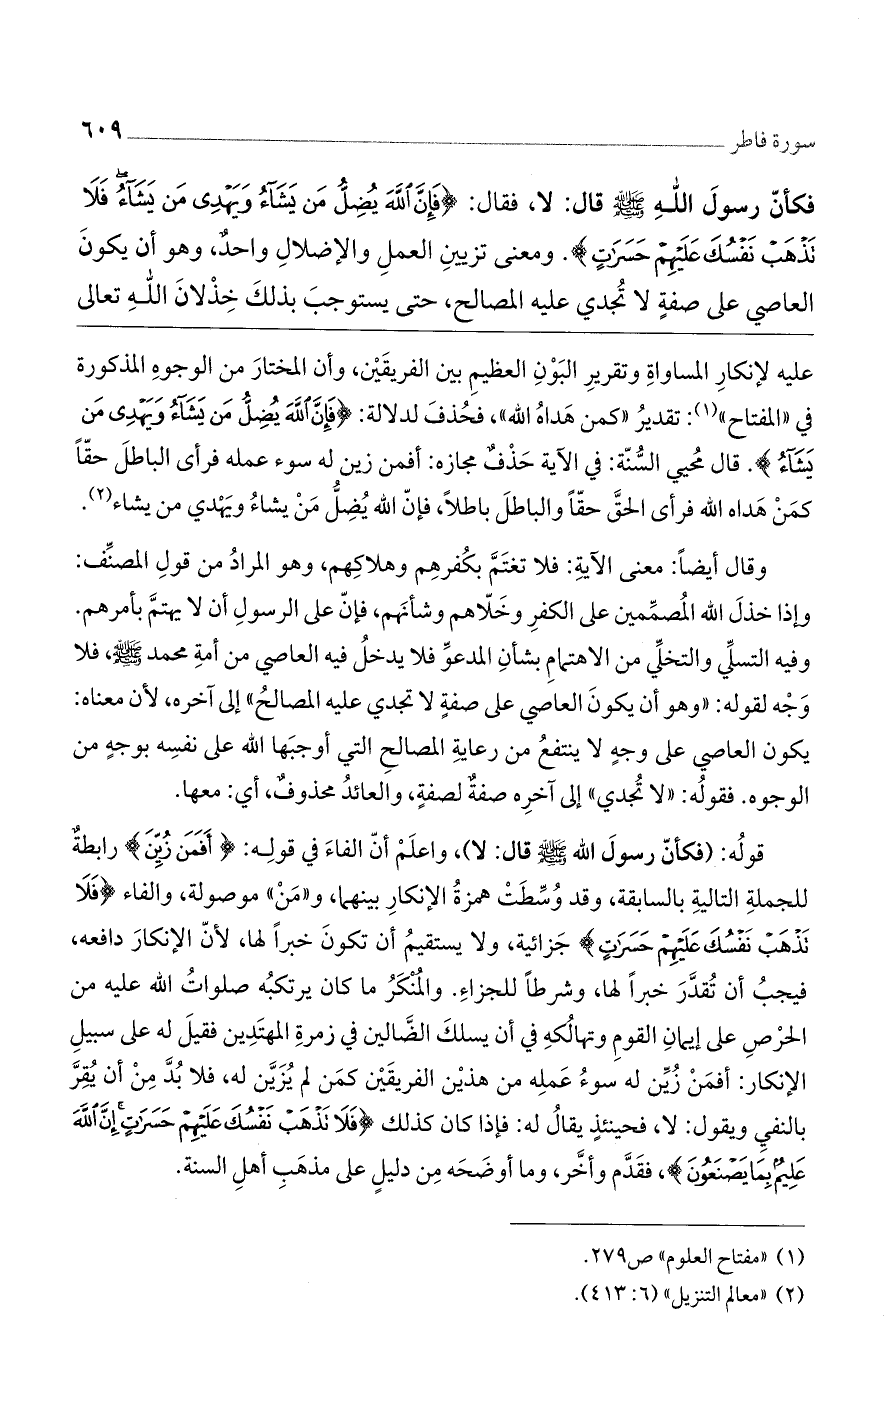 سورة فاطر ٦٠٩
فكأنّ رسولَ اللَّهِ ﷺ قال: لا، فقال: ﴿فَإِنَّ ٱللَّهَ يُضِلُّ مَن يَشَآءُ وَيَهْدِى مَن يَشَآءُ ۖ فَلَا
نَذْهَبْ نَفْسُكَ عَلَيْهِمْ حَسَرَٰتٍ﴾. ومعنى تزيينِ العملِ والإضلالِ واحدٌ، وهو أن يكونَ
العاصي على صفةٍ لا تُجدي عليه المصالح، حتى يستوجبَ بذلكَ خِذْلانَ اللَّهِ تعالى
عليه لإنكارِ المساواةِ وتقريرِ البَوْنِ العظيمِ بين الفريقَيْن، وأن المختارَ من الوجوهِ المذكورة
في «المفتاح»(١): تقديرُ «كمن هَداهُ الله»، فحُذفَ لدلالة: ﴿فَإِنَّ ٱللَّهَ يُضِلُّ مَن يَشَآءُ وَيَهْدِى مَن
يَشَآءُ﴾. قال مُحيي السُّنّة: في الآية حَذْفٌ مجازه: أفمن زين له سوء عمله فرأى الباطلَ حقّاً
كمَنْ هَداه الله فرأى الحقَّ حقّاً والباطلَ باطلاً، فإنّ الله يُضِلُّ مَنْ يشاءُ ويَهْدي من يشاء(٢).
وقال أيضاً: معنى الآيةِ: فلا تغتَمَّ بكُفرهِم وهلاكِهم، وهو المرادُ من قولِ المصنِّف:
وإذا خذلَ الله المُصمِّمين على الكفرِ وخَلّاهم وشأنَهم، فإنّ على الرسولِ أن لا يهتمَّ بأمرهم.
وفيه التسلِّي والتخلِّي من الاهتمامِ بشأنِ المدعوِّ فلا يدخلُ فيه العاصي من أمةِ محمد ﷺ، فلا
وَجْه لقوله: «وهو أن يكونَ العاصي على صفةٍ لا تجدي عليه المصالحُ» إلى آخره، لأن معناه:
يكون العاصي على وجهٍ لا ينتفعُ من رعايةِ المصالحِ التي أوجبَها الله على نفسِه بوجهٍ من
الوجوه. فقولُه: «لا تُجدي» إلى آخرِه صفةٌ لصفةٍ، والعائدُ محذوفٌ، أي: معها.
قولُه: (فكأنّ رسولَ الله ﷺ قال: لا)، واعلَمْ أنّ الفاءَ في قولِه: ﴿أَفَمَن زُيِّنَ﴾ رابطةٌ
للجملةِ التاليةِ بالسابقة، وقد وُسِّطَتْ همزةُ الإنكارِ بينهما، و«مَنْ» موصولة، والفاء ﴿فَلَا
نَذْهَبْ نَفْسُكَ عَلَيْهِمْ حَسَرَٰتٍ﴾ جزائية، ولا يستقيمُ أن تكونَ خبراً لها، لأنّ الإنكارَ دافعه،
فيجبُ أن تُقدَّرَ خبراً لها، وشرطاً للجزاءِ. والمُنْكَرُ ما كان يرتكبُه صلواتُ الله عليه من
الحرْصِ على إيمانِ القومِ وتهالُكِه في أن يسلكَ الضَّالين في زمرةِ المهتَدِين فقيلَ له على سبيلِ
الإنكار: أفمَنْ زُيِّن له سوءُ عَملِه من هذيْن الفريقَيْن كمَن لم يُزَيَّن له، فلا بُدَّ مِنْ أن يُقِرَّ
بالنفي ويقول: لا، فحينئذٍ يقالُ له: فإذا كان كذلك ﴿فَلَا نَذْهَبْ نَفْسُكَ عَلَيْهِمْ حَسَرَٰتٍ ۚ إِنَّ ٱللَّهَ
عَلِيمٌۢ بِمَا يَصْنَعُونَ﴾، فقَدَّم وأخَّر، وما أوضَحَه مِن دليلٍ على مذهَبِ أهلِ السنة.
(١) «مفتاح العلوم» ص٢٧٩.
(٢) «معالم التنزيل» (٦: ٤١٣).